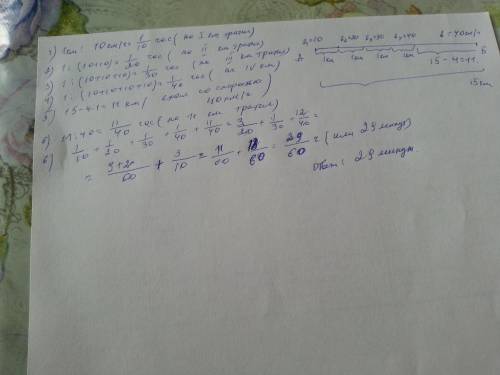 1) 1 км : 10 км/ч = 1/10 час (на I км трассы)
2) 1 : (10+10) = 1/20 час (на II км трассы)
3) 1 : (10+10+10) = 1/30 час (на III км трассы)
4) 1 : (10+10+10+10) = 1/40 час (на IV км)
5) 15-4·1 = 11 км (ехал со скоростью
40 км/ч)
6) 11:40 = 11/40 час (на 11 км трассы)
в) 1/10 + 1/20 + 1/30 + 1/40 + 11/40 = 3/20 + 1/30 + 12/40 =
= 9+2/60 + 3/10 = 11/60 + 18/60 = 29/60 = (или 29 минут)
Ответ: 29 минут.
v₁=10 v₂=20 v₃=30 v₄=40 v=40км/ч
А Б
1км 1км 1км 1км 15-4=11.
15км